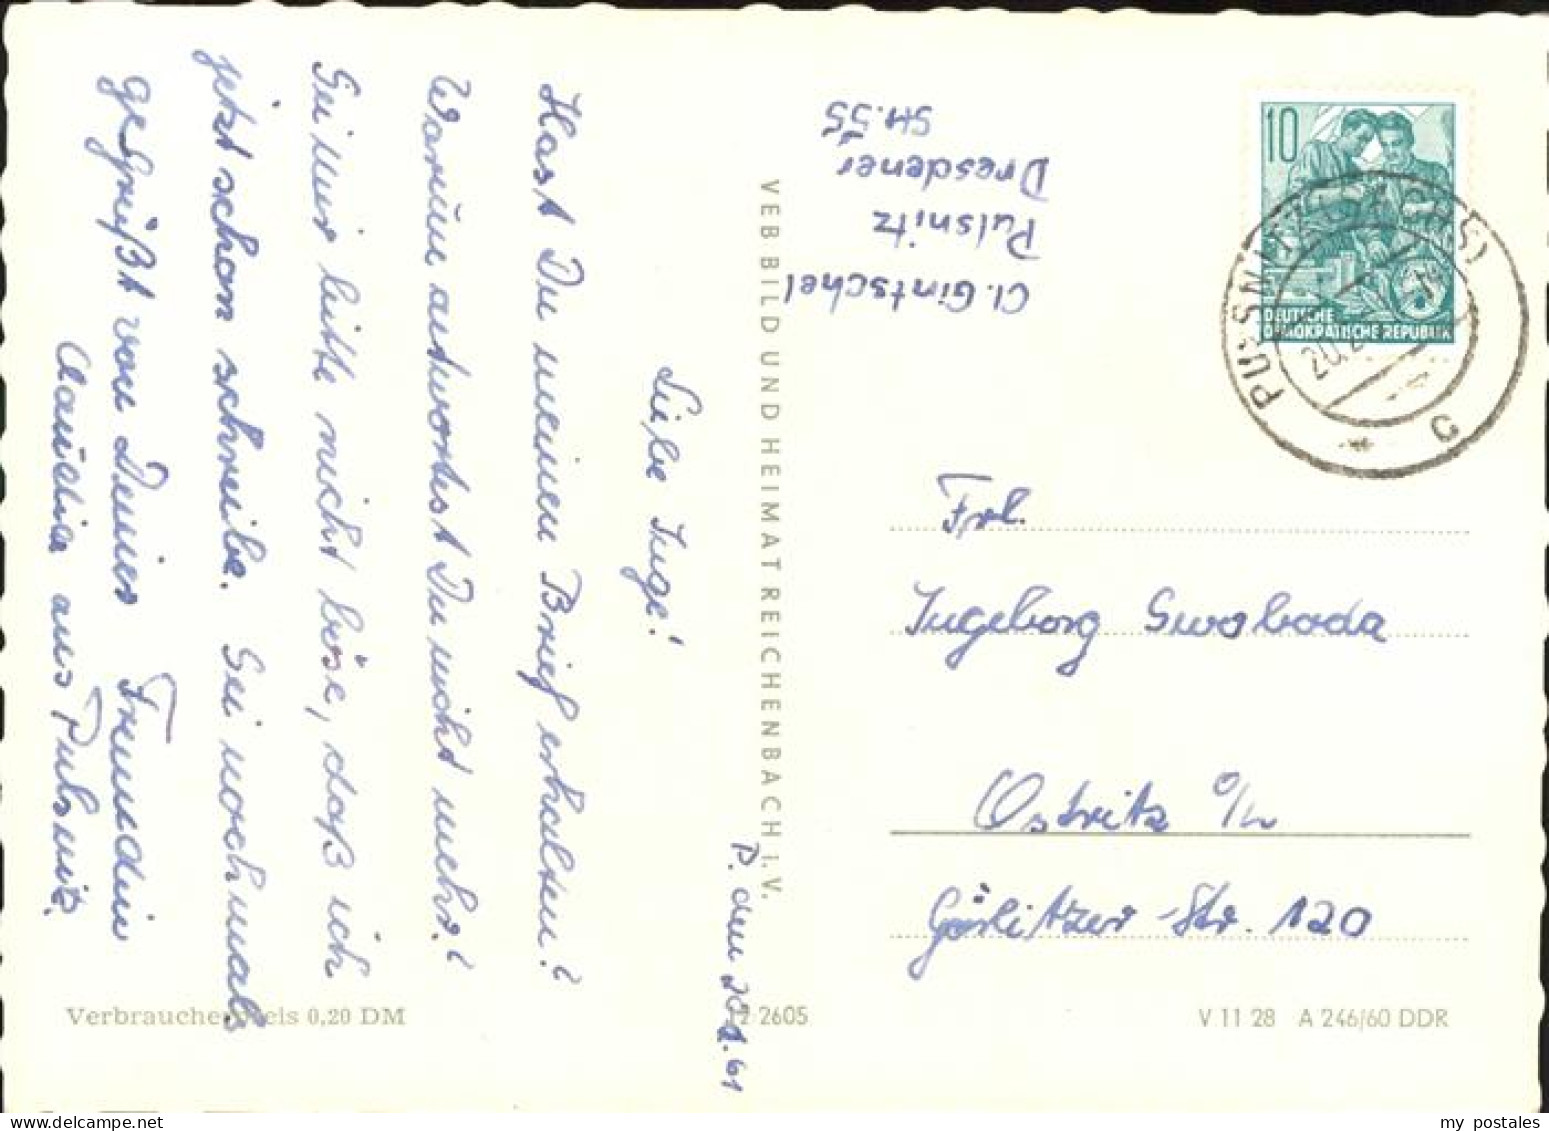 P. den 20.2.61
Liebe Inge!
Hast Du meinen Brief erhalten?
Warum antwortest Du nicht mehr?
Sei mir bitte nicht böse, daß ich
jetzt schon schreibe. Sei nochmals
gegrüßt von Deiner Freundin
Claudia aus Pulsnitz.
Cl. Gintschel
Pulsnitz
Dresdener
Str. 55
VEB BILD UND HEIMAT REICHENBACH I. V.
10
DEUTSCHE
DEMOKRATISCHE REPUBLIK
PULSNITZ (SACHS)
20.2.
c
Frl.
Ingeborg Swoboda
Ostritz O/L
Görlitzer Str. 120
Verbraucherpreis 0,20 DM
12 2605
V 11 28 A 246/60 DDR
my postales